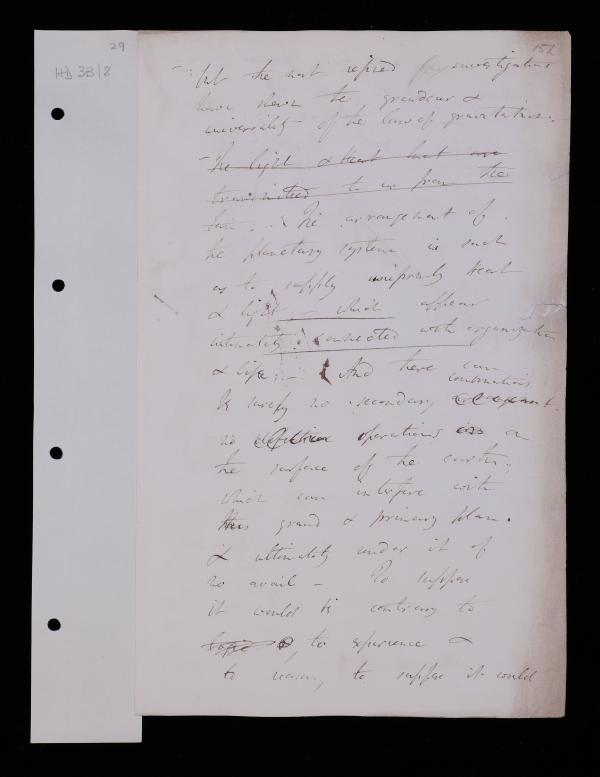 29
HD 3B/8
152
but the most refined investigations
have shewn the grandeur &
universality of the law of gravitation.
The light & Heat that are
transmitted to us from the
Sun. The arrangement of
the planetary system is such
as to supply uniformly Heat
& light, – which appear
intimately connected with organization
& life; – And there can
combinations
be surely no secondary
no operations on
the surface of the earth;
which can interfere with
this grand & primary plan.
& ultimately render it of
no avail – To suppose
it would be contrary to
to experience &
to reason, to suppose it would